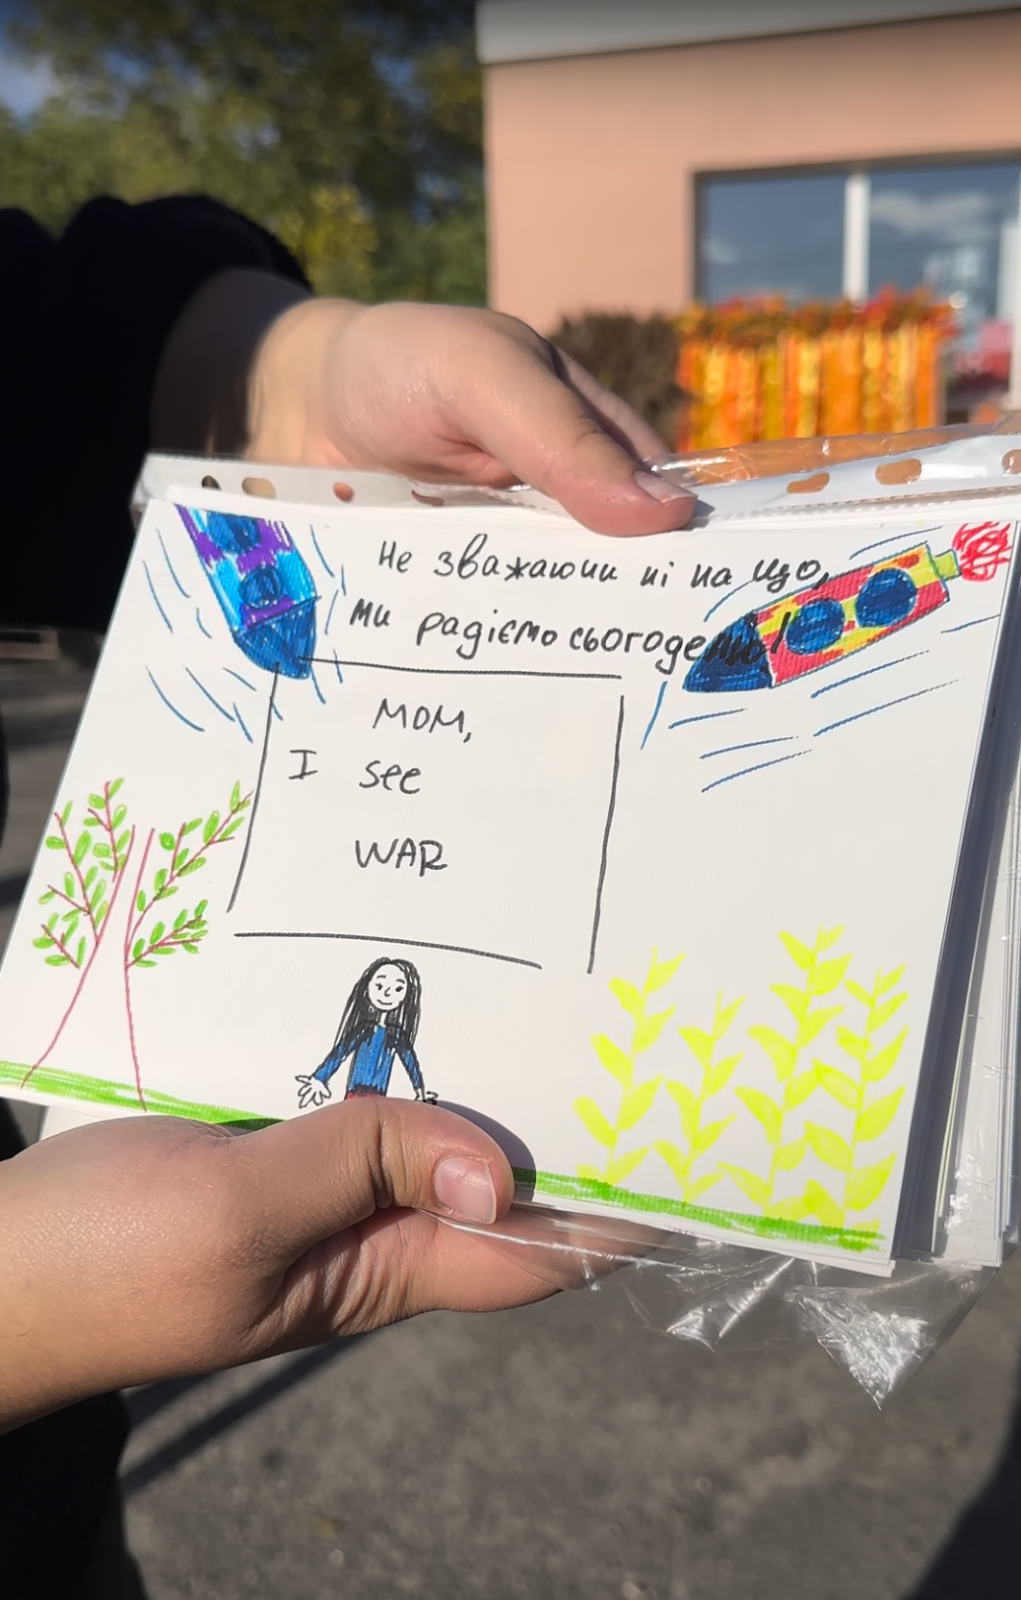 Не зважаючи ні на що,
ми радіємо сьогоденню!
MOM,
I see
WAR